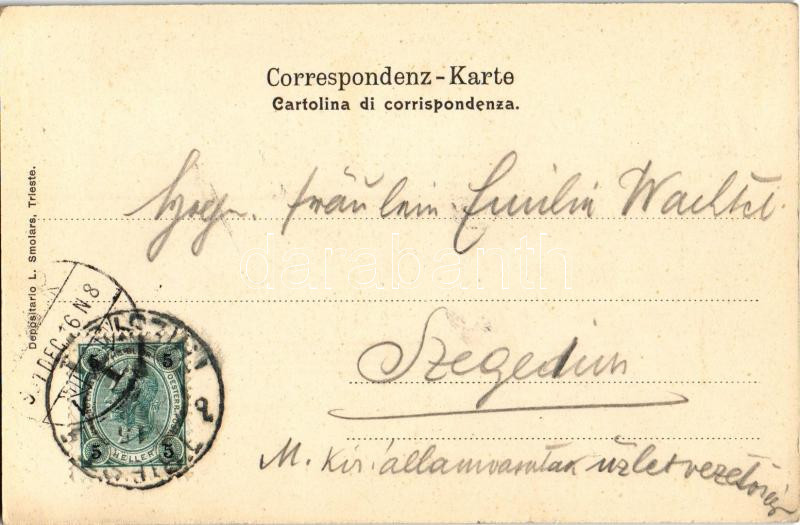 Correspondenz-Karte
Cartolina di corrispondenza.
Depositario L. Smolars, Trieste.
Fräulein Emilie Wachtel.
Szegedin
M. kir. államvasutak üzletvezetőség
darabanth
5 5
5 HELLER 5